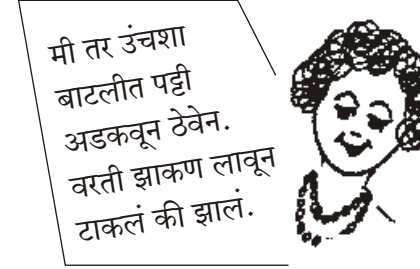 मी तर उंचशा
बाटलीत पट्टी
अडकवून ठेवेन.
वरती झाकण लावून
टाकलं की झालं.